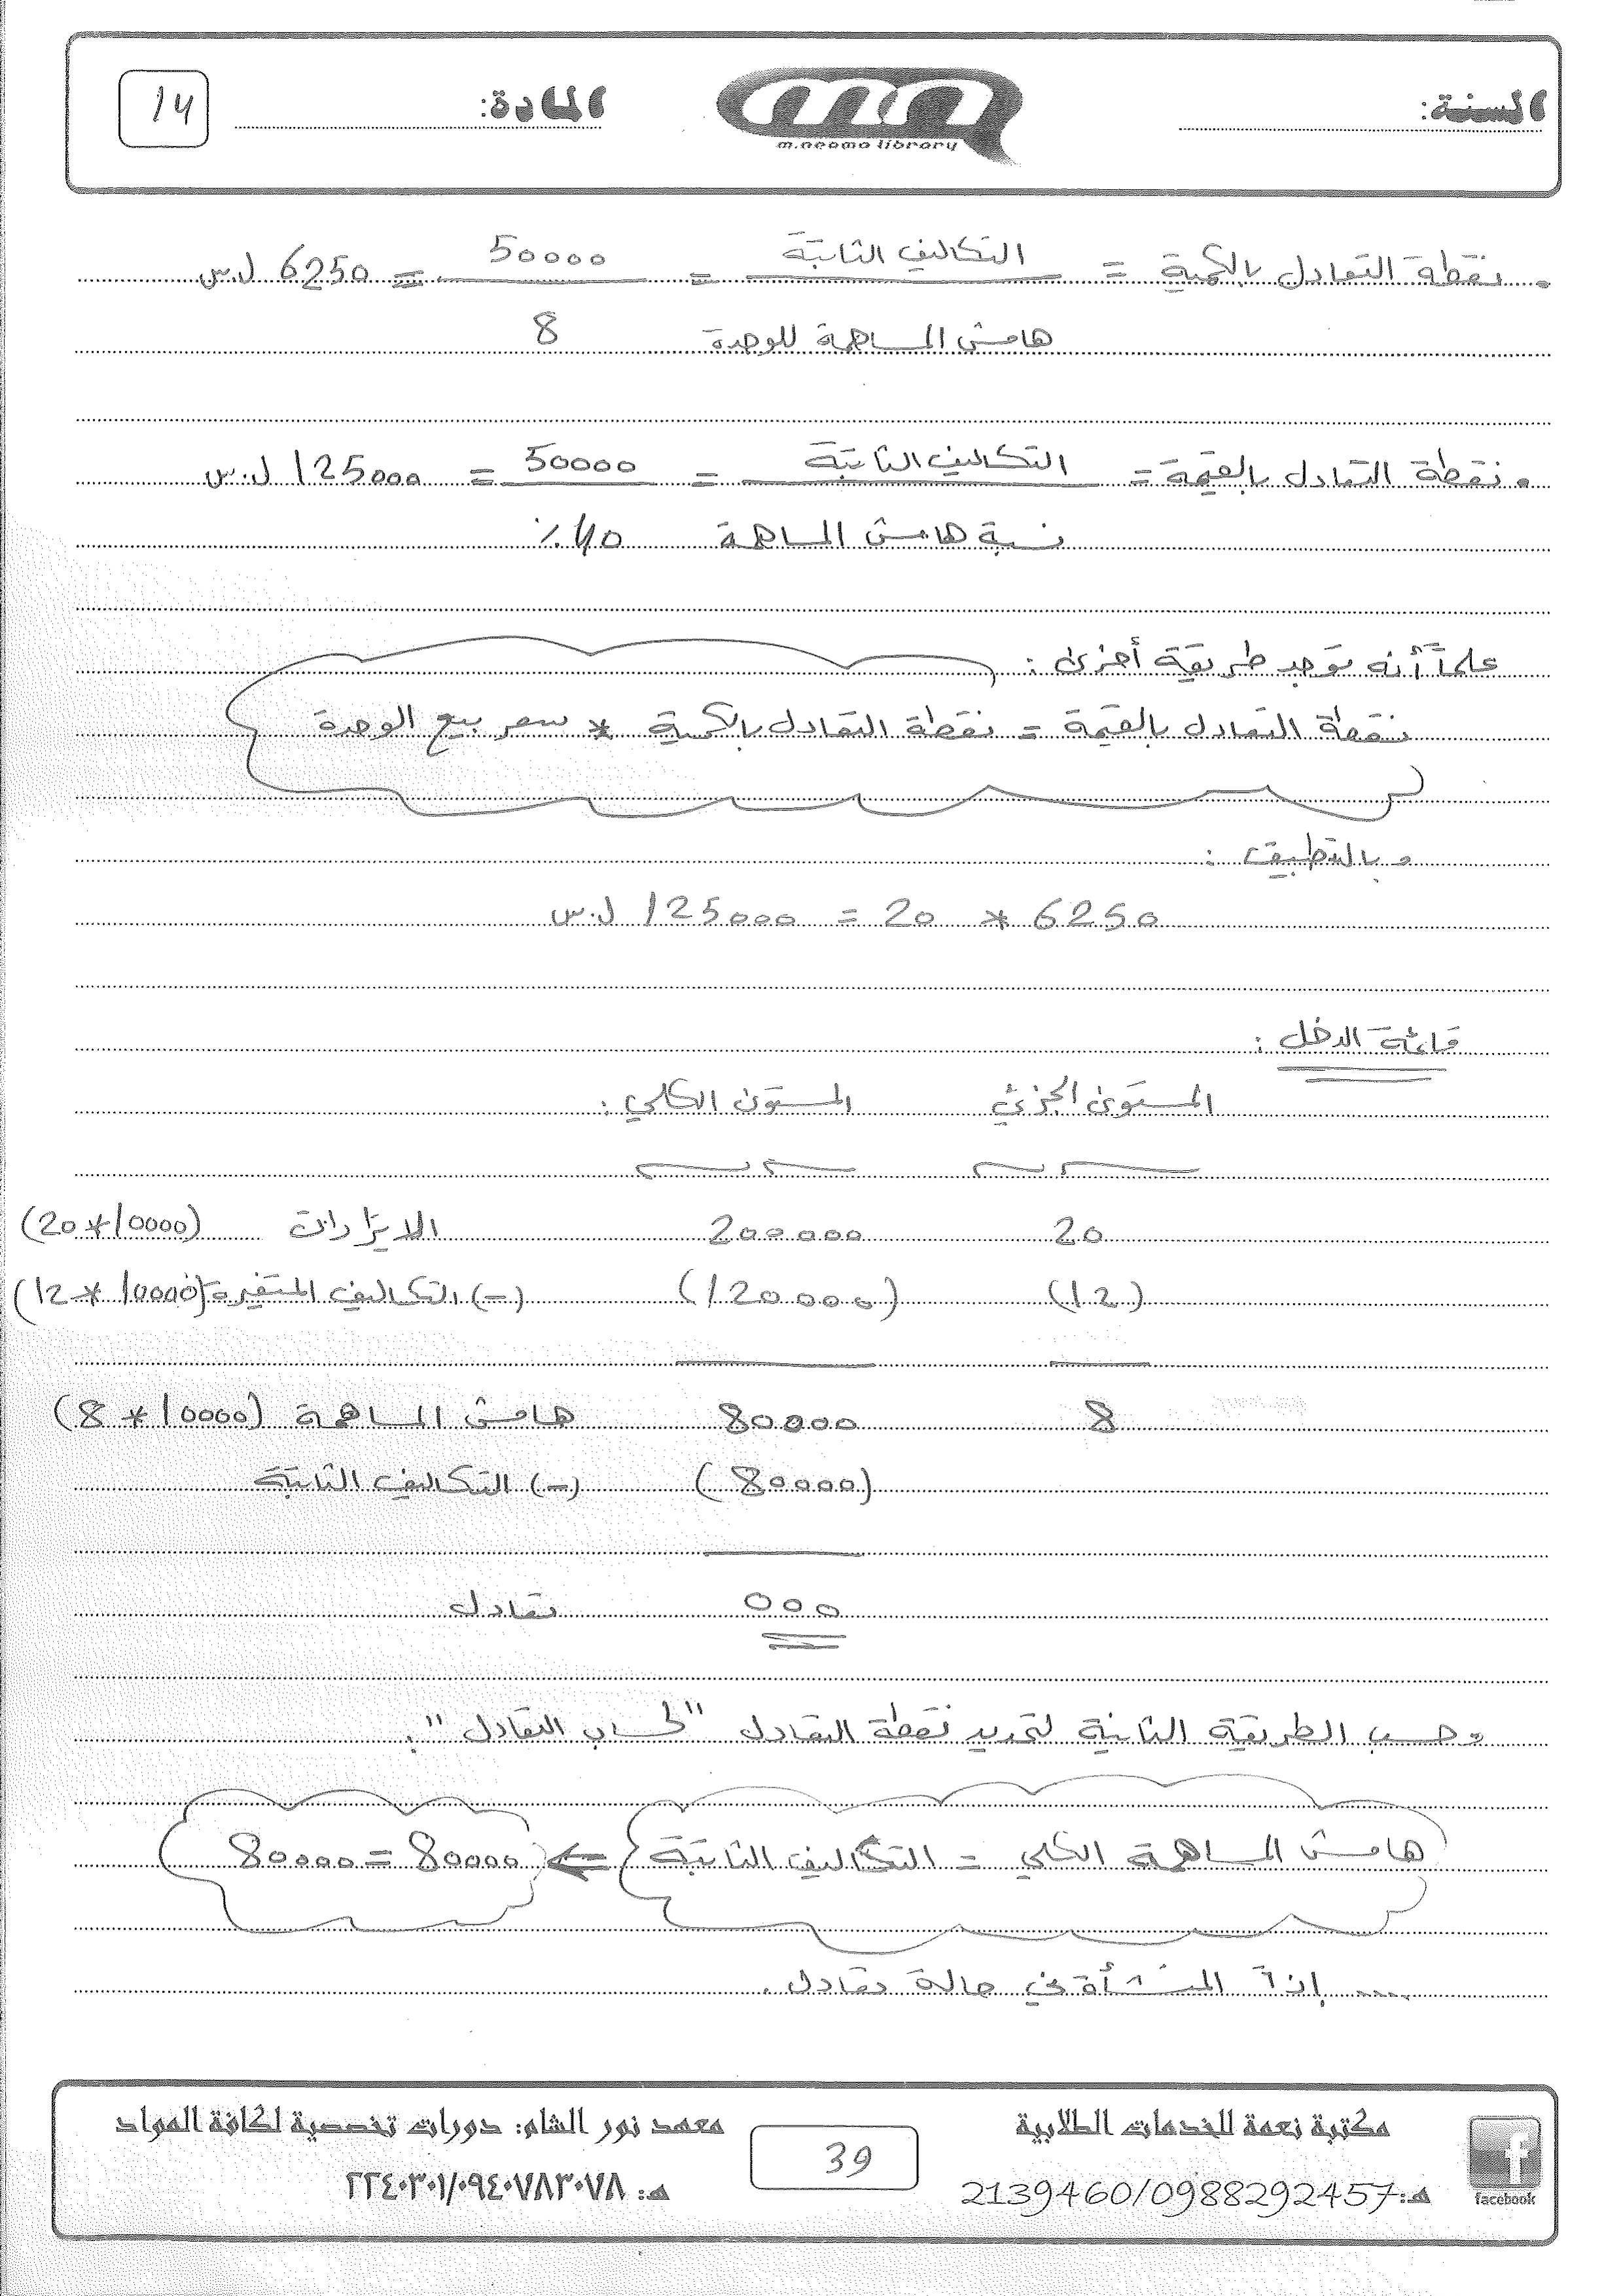 السنة:
m.neama library
المادة:
14
نقطة التعادل بالكمية = التكاليف الثابتة = 50000 = 6250 ل.س
هامش المساهمة للوحدة 8
نقطة التعادل بالقيمة = التكاليف الثابتة = 50000 = 125000 ل.س
نسبة هامش المساهمة 40٪
علماً أنه توجد طريقة أخرى:
نقطة التعادل بالقيمة = نقطة التعادل بالكمية * سعر بيع الوحدة
وبالتطبيق:
6250 * 20 = 125000 ل.س
قائمة الدخل:
المستوى الجزئي المستوى الكلي:
20 200000 الايرادات (20*10000)
(12) (120000) (-) التكاليف المتغيرة (12*10000)
8 80000 هامش المساهمة (8*10000)
(80000) (-) التكاليف الثابتة
000 تعادل
وحسب الطريقة الثانية لتحديد نقطة التعادل "لحساب التعادل":
هامش المساهمة الكلي = التكاليف الثابتة ⇐ 80000 = 80000
.... إذاً المنشأة في حالة تعادل.
مكتبة نعمة للخدمات الطلابية
هـ:2139460/0988292457
facebook
39
معهد نور الشام: دورات تخصصية لكافة المواد
هـ: ٢٢٤٠٣٠١/٠٩٤٠٧٨٣٠٧٨